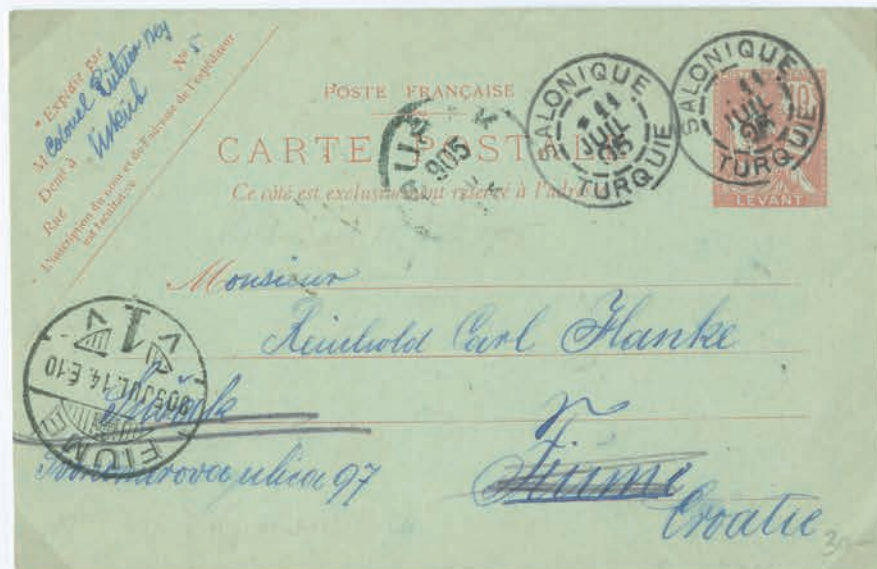 Expédié par
M Colonel bey
Demt à Uskub
Rue No 5
L'inscription du nom et de l'adresse de l'expéditeur
est facultative
POSTE FRANÇAISE
CARTE POSTALE
Ce côté est exclusivement réservé à l'adresse
SALONIQUE
11
JUIL
05
TURQUIE
SALONIQUE
11
JUIL
05
TURQUIE
10
LEVANT
905
Monsieur
Reinhold Carl Hanke
905 JUL. 14. E. 10
1
FIUME
ulica 97
Fiume
Croatie